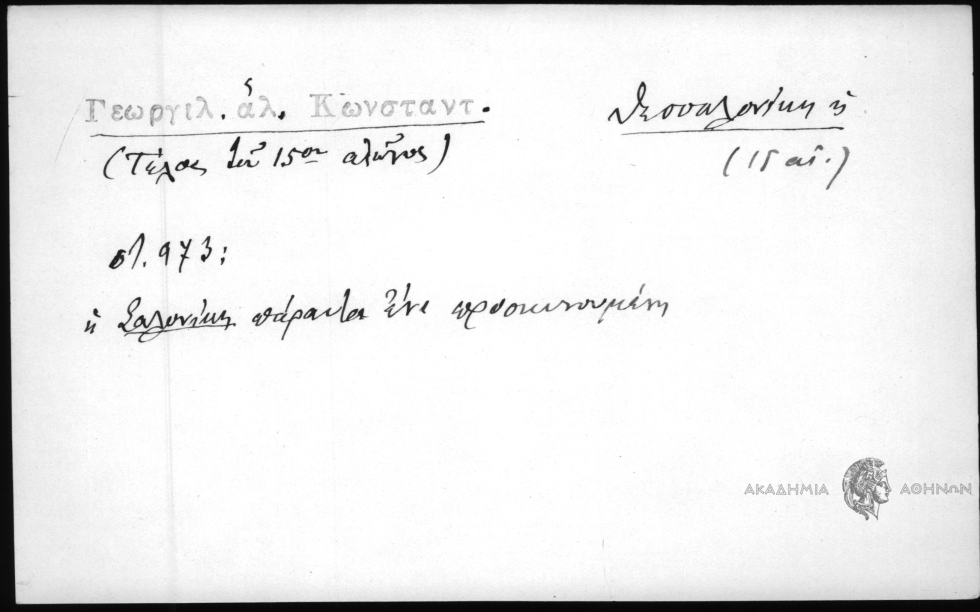 Γεωργιλ. ἁλ. Κωνσταντ.
Θεσσαλονίκη ἡ
(Τέλος τοῦ 15ου αἰῶνος)
(15 αἰ.)
στ. 973:
ἡ Σαλονίκη πάραυτα ἔνε προσκυνουμένη
ΑΚΑΔΗΜΙΑ ΑΘΗΝΩΝ